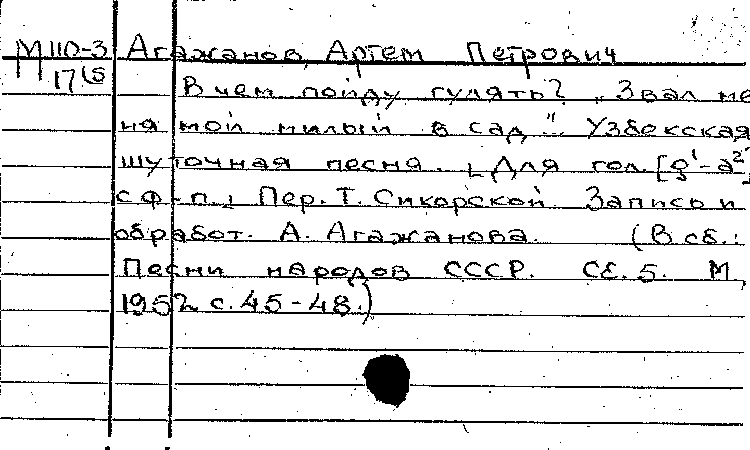 М 110-3 Агажанов, Артем Петрович
17(5 В чем пойду гулять? „Звал ме
ня мой милый в сад". Узбекская
шуточная песня. [Для гол. [g¹-a²]
с ф-п.] Пер. Т. Сикорской. Запись и
обработ. А. Агажанова. (В сб.:
Песни народов СССР. Сб. 5. М,
1952 с. 45-48.)